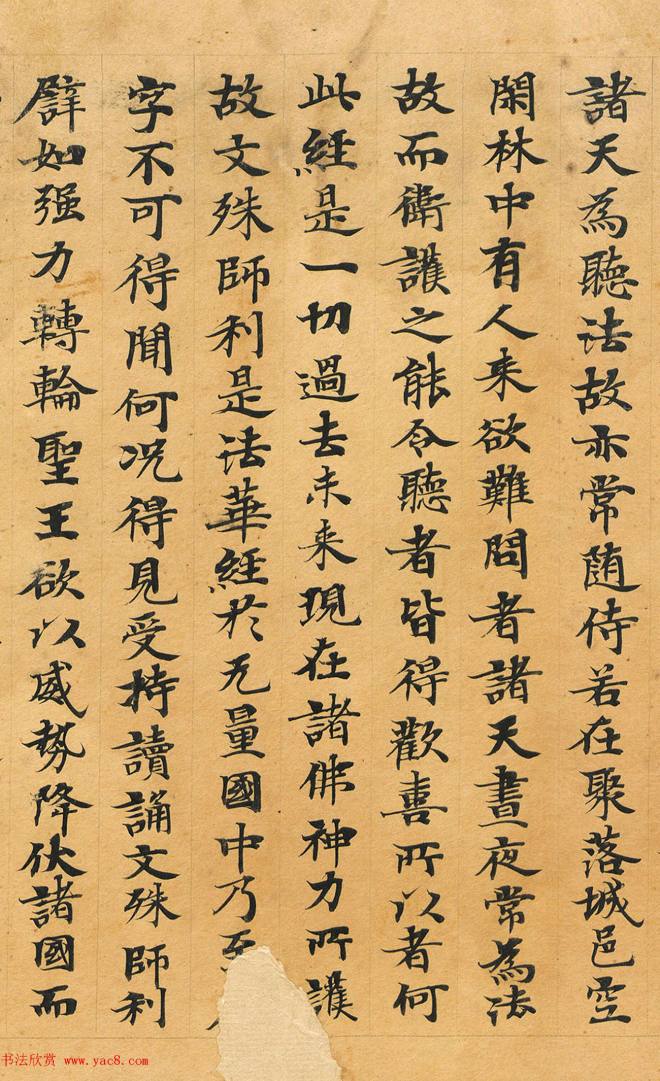 諸天為聽法故亦常随侍若在聚落城邑空
閑林中有人来欲難問者諸天晝夜常為法
故而衛護之能令聽者皆得歡喜所以者何
此經是一切過去未来現在諸佛神力所護
故文殊師利是法華經於无量國中乃至
字不可得聞何况得見受持讀誦文殊師利
譬如强力轉輪聖王欲以威勢降伏諸國而
书法欣赏 www.yac8.com